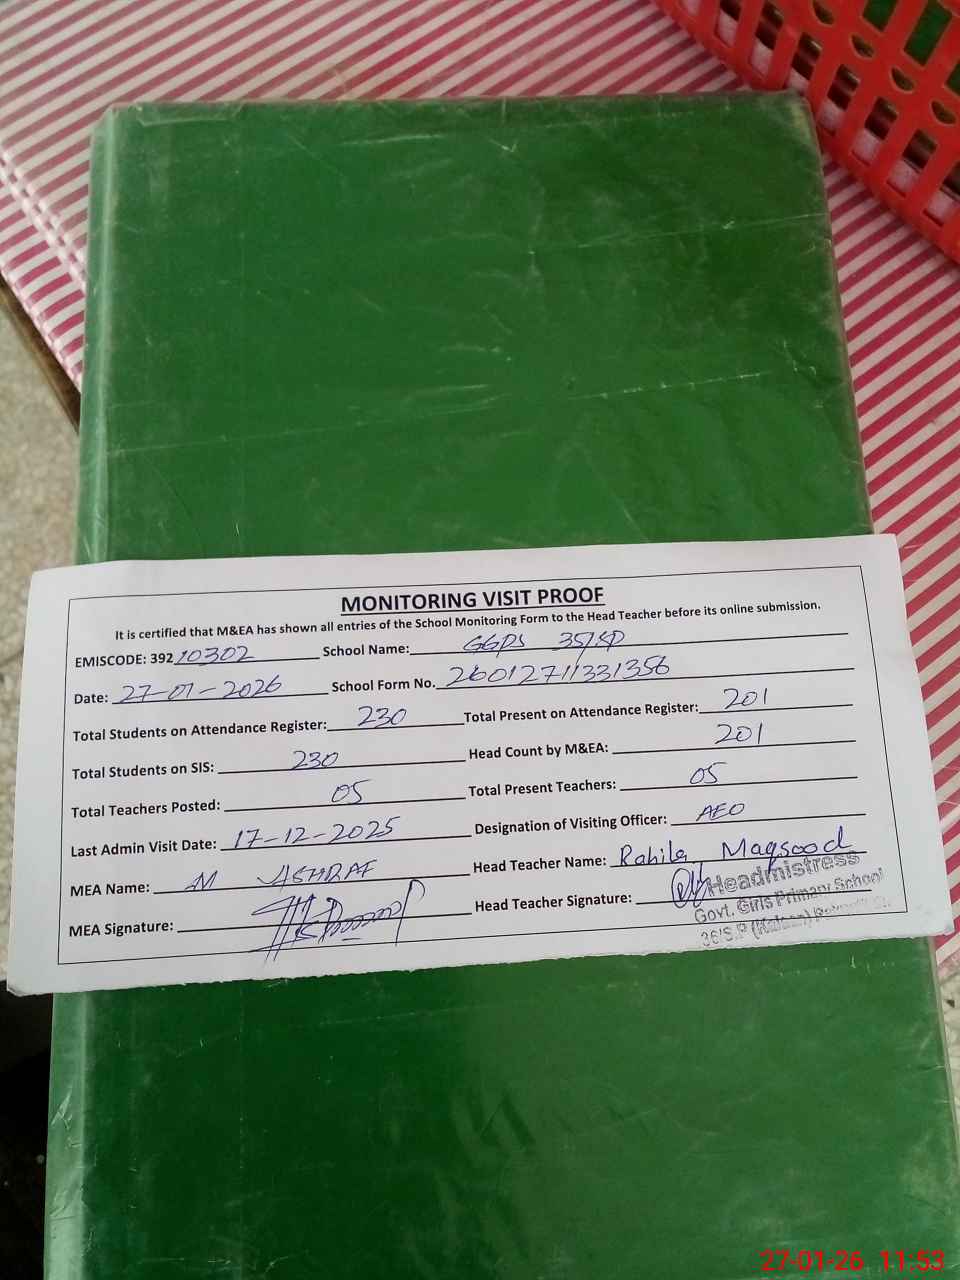 MONITORING VISIT PROOF
It is certified that M&EA has shown all entries of the School Monitoring Form to the Head Teacher before its online submission.
EMISCODE: 392 10302 School Name: GGPS 35/SP
Date: 27-01-2026 School Form No. 26012711331356
Total Students on Attendance Register: 230 Total Present on Attendance Register: 201
Total Students on SIS: 230 Head Count by M&EA: 201
Total Teachers Posted: 05 Total Present Teachers: 05
Last Admin Visit Date: 17-12-2025 Designation of Visiting Officer: AEO
MEA Name: M ASHRAF Head Teacher Name: Rahila Maqsood
MEA Signature: Head Teacher Signature:
Headmistress
Govt. Girls Primary School
S.P
27-01-26 11:53